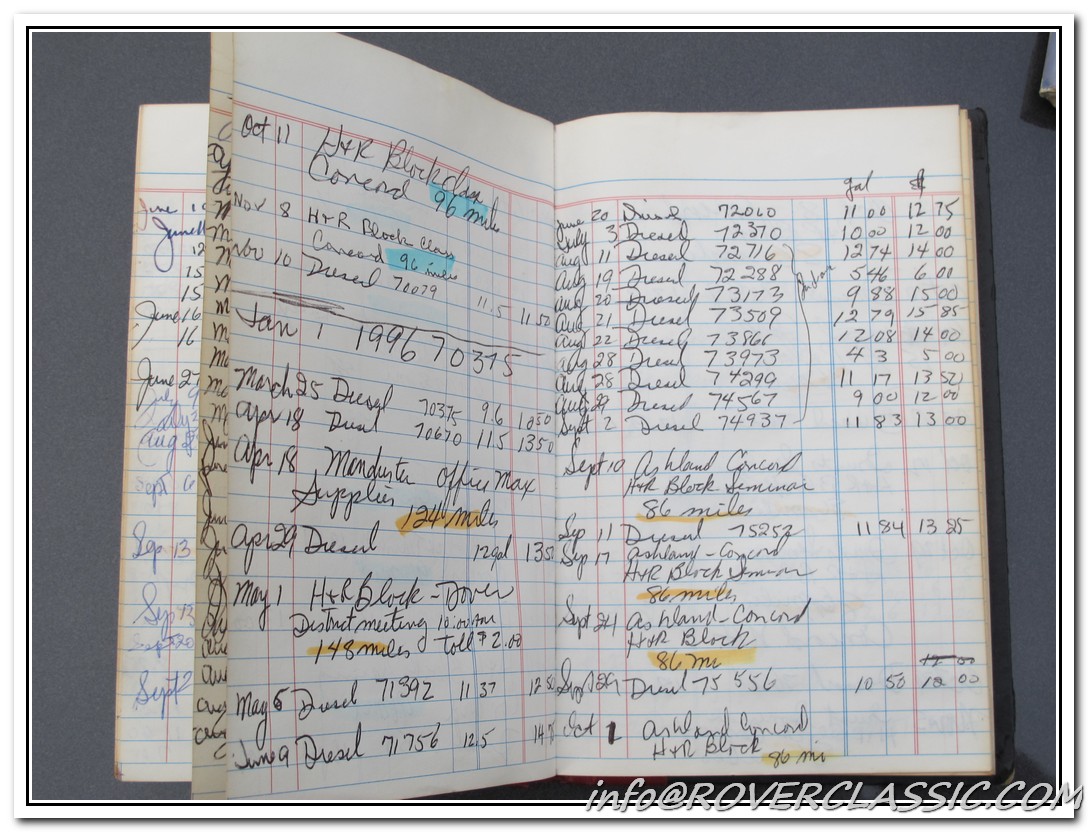 Oct 11 H+R Block class
Concord 96 mile
Nov 8 H+R Block Class
Concord 96 miles
Nov 10 Diesel 70079 11.5 11.50
Jan 1 1996 70375
March 25 Diesel 70375 9.6 1050
Apr 18 Diesel 70670 11.5 1350
Apr 18 Manchester Office Max
Supplies
124 miles
Apr 29 Diesel 12gal 1350
May 1 H+R Block - Dover
District meeting 10:00 am
148 miles toll $2.00
May 6 Diesel 71392 11 37
June 9 Diesel 71756 12.5
gal $
June 20 Diesel 72060 11 00 12 75
July 3 Diesel 72370 10 00 12 00
Aug 11 Diesel 72716 12 74 14 00
Aug 19 Diesel 72288 5 46 6 00
Aug 20 Diesel 73173 9 88 15 00
Aug 21 Diesel 73509 12 79 15 85
Aug 22 Diesel 73866 12 08 14 00
Aug 28 Diesel 73973 4 3 5 00
Aug 28 Diesel 74299 11 17 13 50
Aug 29 Diesel 74567 9 00 12 00
Sept 2 Diesel 74937 11 83 13 00
Sept 10 Ashland Concord
H+R Block Seminar
86 miles
Sep 11 Diesel 75252 11 84 13 85
Sep 17 Ashland - Concord
H+R Block Seminar
86 miles
Sept 24 Ashland - Concord
H+R Block
86 mi
Sept 29 Diesel 75 556 10 50 12 00
Oct 1 Ashland Concord
H+R Block
86 mi
June
June 11
12
15
15
June 16
16
June 27
Aug 8
Sept 6
Sep 13
Sep 13
Sept 20
Sept 2
info@ROVERCLASSIC.COM